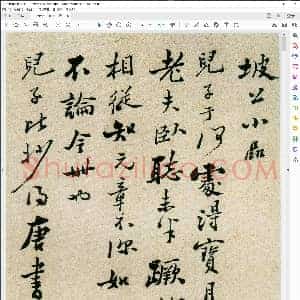 坡公小
兒子于何處得寶月
老夫臥聽未半蹶
相從知元章不深如
不論今世也
兒子比抄得唐書